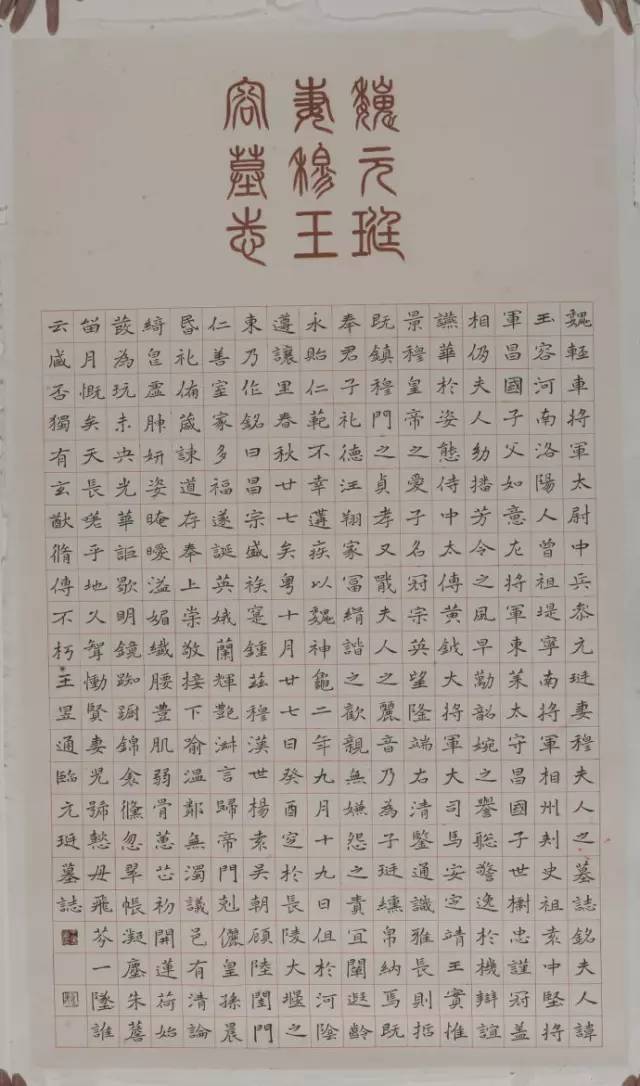 魏元珽
妻穆王
容墓志
魏輕車將軍太尉中兵叅元珽妻穆夫人之墓誌銘夫人諱
玉容河南洛陽人曾祖堤寧南將軍相州刾史祖袁中堅將
軍昌國子父如意左將軍東萊太守昌國子世榭忠謹冠盖
相仍夫人幼播芳令之風早勵韶婉之譽聡警逸於機辯誼
讌華於姿態侍中太傅黄鉞大將軍大司馬安定靖王實惟
景穆皇帝之愛子名冠宗英望隆端右清鑒通識雅長則哲
既鎮穆門之貞孝又戢夫人之麗音乃為子珽纁帛納焉既
奉君子礼德汪翔家冨縎諧之歡親無嫌怨之責宜闡遐齡
永貽仁範不幸遘疾以魏神龜二年九月十九日徂於河陰
遵讓里春秋廿七矣粵十月廿七日癸酉窆於長陵大堰之
東乃作銘曰昌宗盛族寔鍾茲穆漢世楊袁吳朝顧陸閨門
仁善室家多福遂誕英娥蘭輝艷淋言歸帝門剋儷皇孫晨
昬礼侑箴諫道存奉上崇敬接下愉溫鄰無濁議邑有清論
綺皃虛腗妍姿晻曖溢媚纖腰豊肌弱骨蕙芯初開蓮荷始
蕟為玩未央光華詎歇明鏡踟蹰錦衾儵忽翠帳凝塵朱簷
留月慨矣天長嗟乎地久聟慟賢妻児號慜母飛芬一墜誰
云咸否獨有玄猷脩傳不朽 王昱通臨元珽墓誌